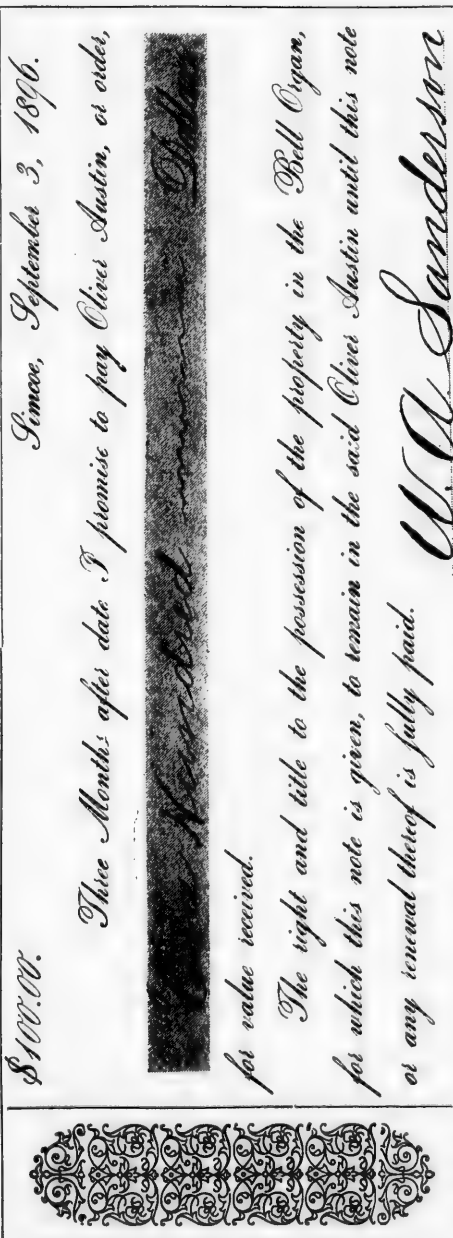 $100.00. Simcoe, September 3, 1896.
Three Months after date I promise to pay Oliver Austin, or order,
One Hundred Dollars
for value received.
The right and title to the possession of the property in the Bell Organ,
for which this note is given, to remain in the said Oliver Austin until this note
or any renewal thereof is fully paid.
W. A. Sanderson